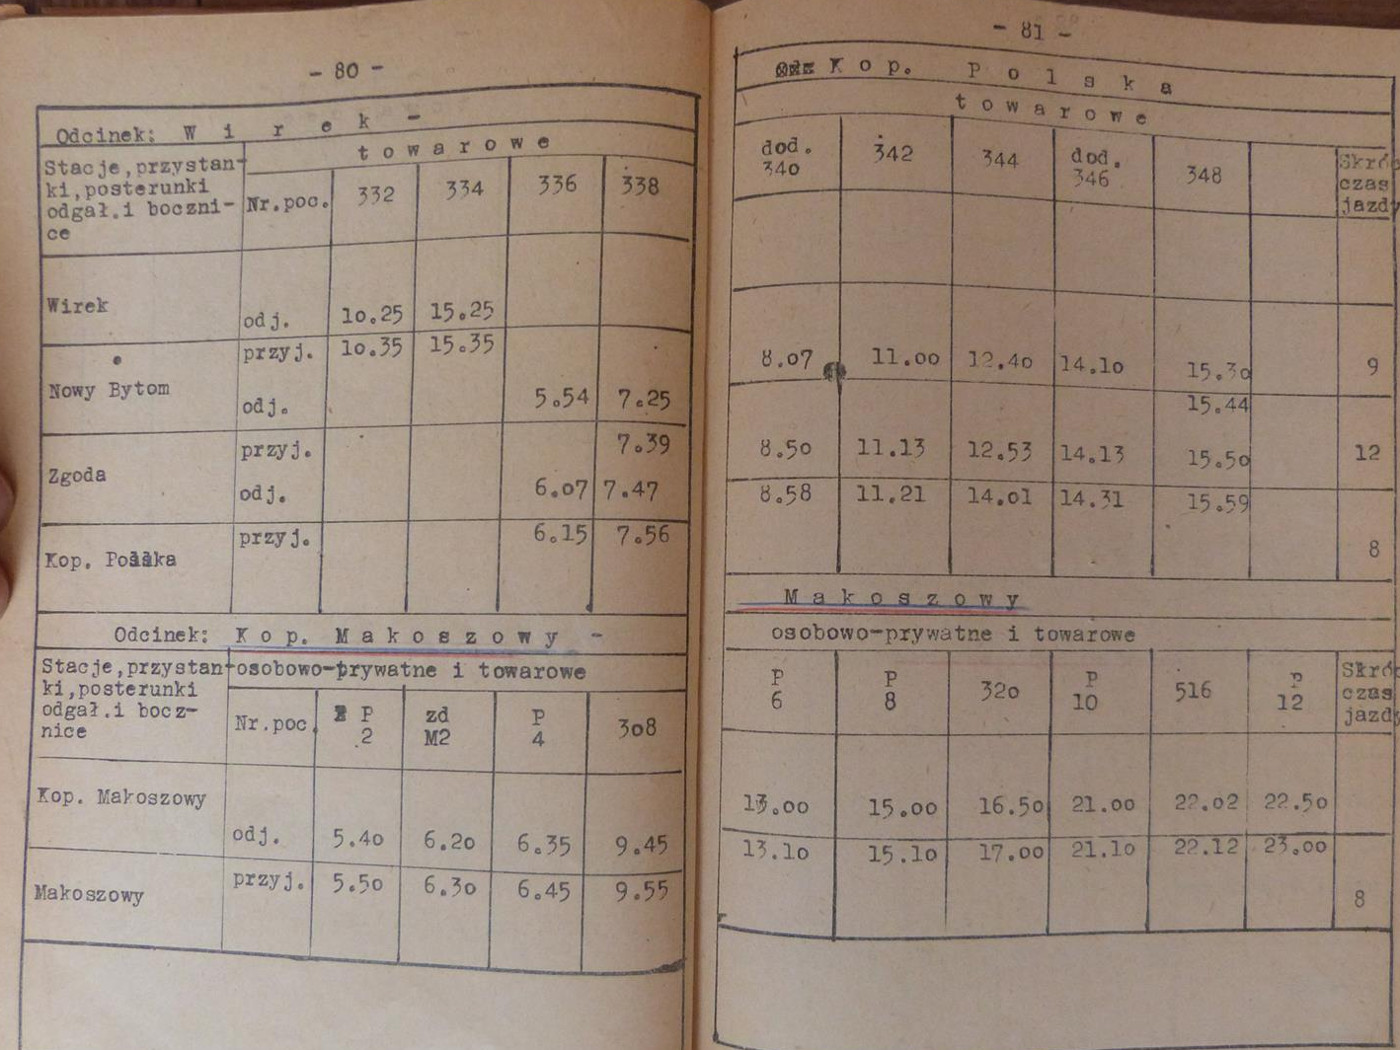 - 80 -
Odcinek: W i r e k -
Stacje,przystan-
ki,posterunki
odgał.i boczni-
ce
t o w a r o w e
Nr.poc. 332 334 336 338
Wirek odj. 10.25 15.25
przyj. 10.35 15.35
Nowy Bytom
odj. 5.54 7.25
przyj. 7.39
Zgoda
odj. 6.07 7.47
przyj. 6.15 7.56
Kop. Polska
Odcinek: K o p. M a k o s z o w y -
Stacje,przystan-
ki,posterunki
odgał.i bocz-
nice
osobowo-prywatne i towarowe
Nr.poc. P 2 zd M2 P 4 308
Kop. Makoszowy
odj. 5.40 6.20 6.35 9.45
przyj. 5.50 6.30 6.45 9.55
Makoszowy
- 81 -
K o p. P o l s k a
t o w a r o w e
dod. 340 342 344 dod. 346 348 Skróc czas jazdy
8.07 11.00 12.40 14.10 15.30 9
15.44
8.50 11.13 12.53 14.13 15.50 12
8.58 11.21 14.01 14.31 15.59
8
M a k o s z o w y
osobowo-prywatne i towarowe
P 6 P 8 320 P 10 516 P 12 Skróc czas jazdy
13.00 15.00 16.50 21.00 22.02 22.50
13.10 15.10 17.00 21.10 22.12 23.00
8